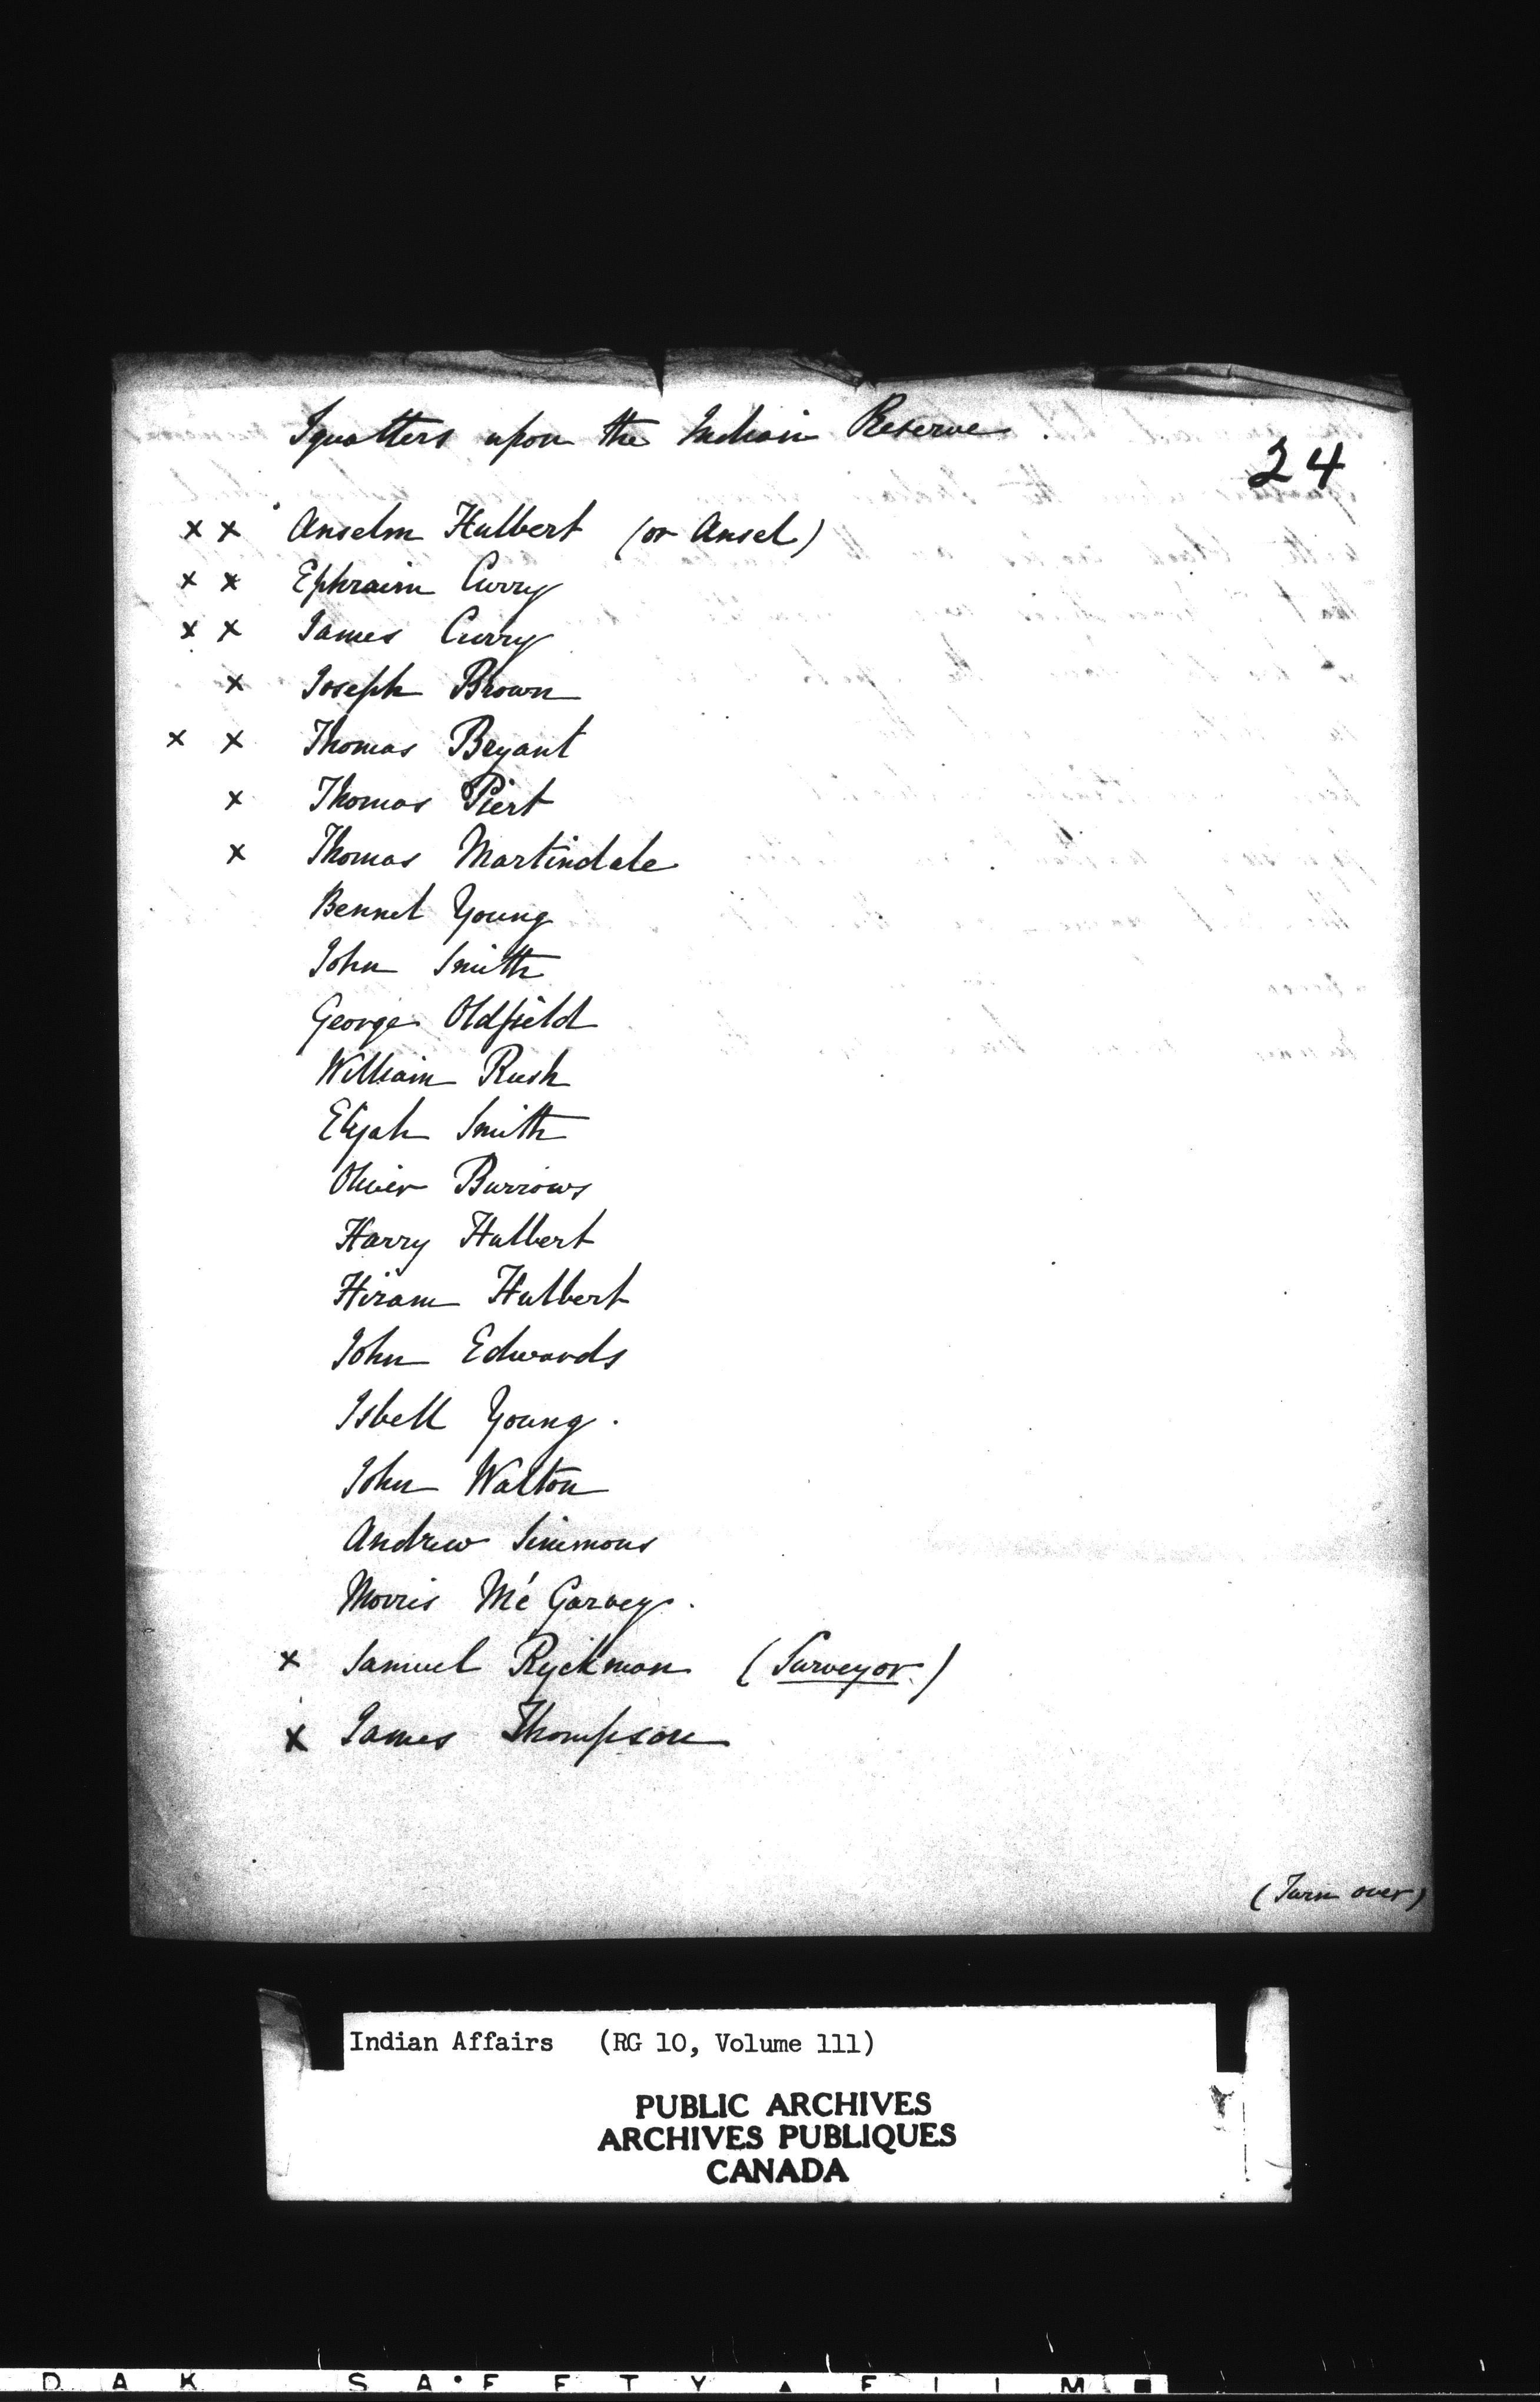 Squatters upon the Indian Reserve.
24
x x Anselm Hulbert (or Ansel)
x x Ephraim Curry
x x James Curry
x Joseph Brown
x x Thomas Bryant
x Thomas Piert
x Thomas Martindale
Bennet Young
John Smith
George Oldfield
William Rush
Elijah Smith
Oliver Burrows
Harry Hulbert
Hiram Hulbert
John Edwards
Isbell Young.
John Walton
Andrew Simmons
Morris Mc Garvey.
x Samuel Ryckman (Surveyor.)
x James Thompson
(Turn over)
Indian Affairs (RG 10, Volume 111)
PUBLIC ARCHIVES
ARCHIVES PUBLIQUES
CANADA